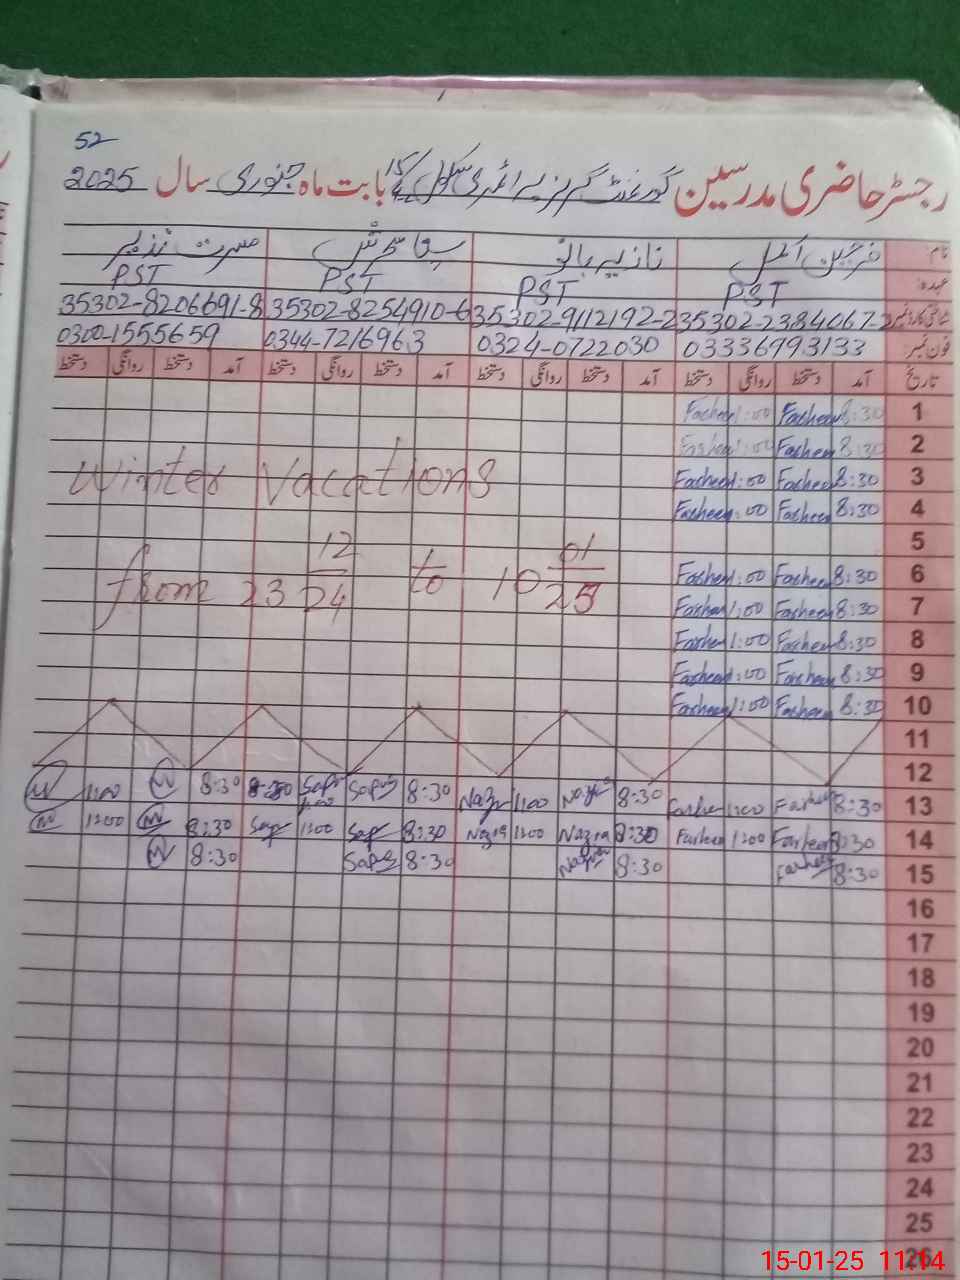 52
رجسٹر حاضری مدرسین گورنمنٹ گرلز پرائمری سکول 15/4L بابت ماہ جنوری سال 2025
نام: فرحین اکمل نازیہ بانو مسرت نذیر
عہدہ: PST PST PST PST
شناختی کارڈ نمبر 35302-2384067-2 35302-9112192-2 35302-8254910-6 35302-8206691-8
فون نمبر: 03336993133 0324-0722030 0344-7216963 0300-1555659
تاریخ آمد دستخط روانگی دستخط آمد دستخط روانگی دستخط آمد دستخط روانگی دستخط آمد دستخط روانگی دستخط
1 8:30 Fasheen 1:00 Fasheen
2 8:30 Fasheen 1:00 Fasheen
3 8:30 Fasheen 1:00 Fasheen
Winter Vacations
4 8:30 Fasheen 1:00 Fasheen
5
from 23 12/24 to 10 01/25
6 8:30 Fasheen 1:00 Fasheen
7 8:30 Fasheen 1:00 Fasheen
8 8:30 Fasheen 1:00 Fasheen
9 8:30 Fasheen 1:00 Fasheen
10 8:30 Fasheen 1:00 Fasheen
11
12
13 8:30 Fasheen 1:00 8:30 1:00 8:30 1:00 8:30 8:30 1:00
14 8:30 Fasheen 1:00 Fasheen 8:30 Nazia 1:00 Nazia 8:30 1:00 8:30 1:00
15 8:30 Fasheen 8:30 8:30 8:30
16
17
18
19
20
21
22
23
24
25
26
15-01-25 11:14